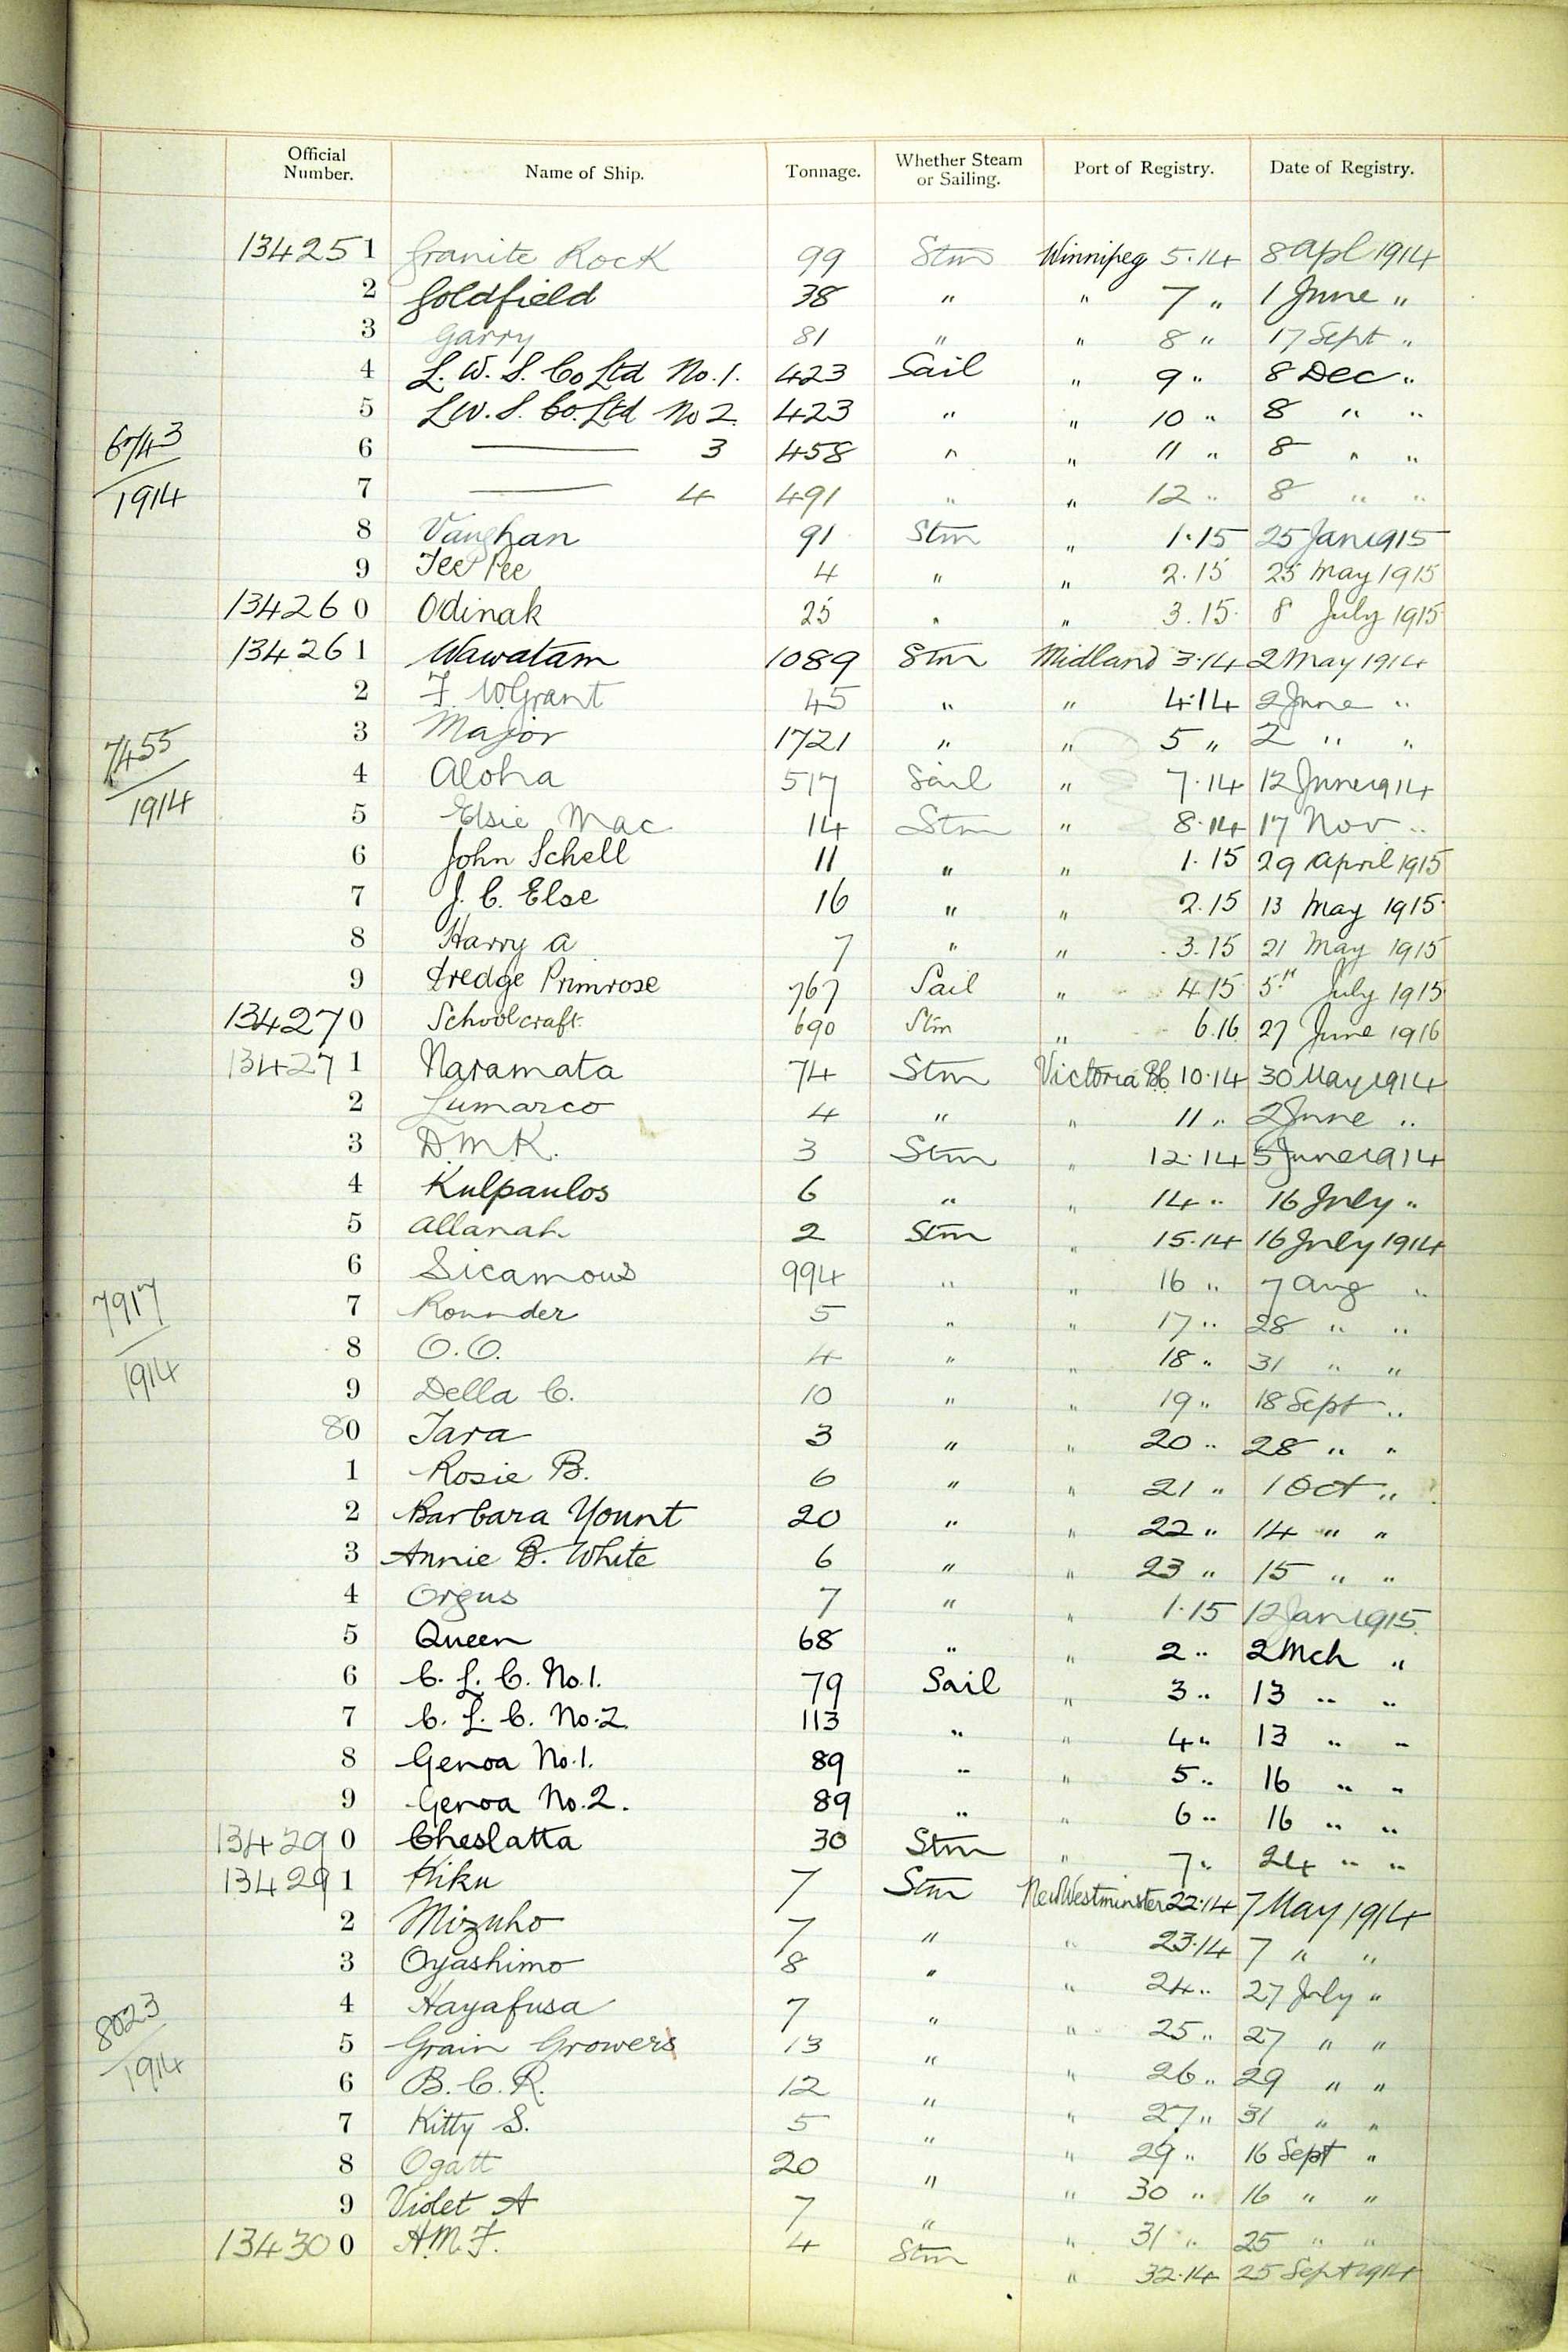 Official Number. Name of Ship. Tonnage. Whether Steam or Sailing. Port of Registry. Date of Registry.
134251 Granite Rock 99 Stm Winnipeg 5.14 8 Apl 1914
2 Goldfield 38 " " 7 " 1 June "
3 Garry 81 " " 8 " 17 Sept "
4 L. W. S. Co Ltd No. 1. 423 Sail " 9 " 8 Dec "
5 L W. S. Co. Ltd No 2. 423 " " 10 " 8 " "
6743 / 1914
6 —— 3 458 " " 11 " 8 " "
7 —— 4 491 " " 12 " 8 " "
8 Vaughan 91 Stm " 1.15 25 Jan 1915
9 Tee Pee 4 " " 2.15 25 May 1915
134260 Odinak 25 " " 3.15 8 July 1915
134261 Wawatam 1089 Stm Midland 3.14 2 May 1914
2 F. W Grant 45 " " 4.14 2 June "
3 Major 1721 " " 5 " 2 " "
7455 / 1914
4 Aloha 517 Sail " 7.14 12 June 1914
5 Elsie Mac 14 Stm " 8.14 17 Nov "
6 John Schell 11 " " 1.15 29 April 1915
7 J. C. Else 16 " " 2.15 13 May 1915
8 Harry A 7 " " 3.15 21 May 1915
9 Dredge Primrose 767 Sail " 4 15 5" July 1915
134270 Schoolcraft 690 Stm " 6.16 27 June 1916
134271 Naramata 74 Stm Victoria BC 10.14 30 May 1914
2 Lumarco 4 " " 11 " 2 June "
3 D.M.K. 3 Stm " 12.14 5 June 1914
4 Kulpaulos 6 " " 14 " 16 July "
5 Allanah 2 Stm " 15.14 16 July 1914
6 Sicamous 994 " " 16 " 7 Aug "
7917 / 1914
7 Rounder 5 " " 17 " 28 " "
8 O.O. 4 " " 18 " 31 " "
9 Della C. 10 " " 19 " 18 Sept "
80 Tara 3 " " 20 " 28 " "
1 Rosie B. 6 " " 21 " 1 Oct "
2 Barbara Yount 20 " " 22 " 14 " "
3 Annie B. White 6 " " 23 " 15 " "
4 Orgus 7 " " 1.15 12 Jan 1915.
5 Queen 68 " " 2 " 2 Mch "
6 C. L. C. No. 1. 79 Sail " 3 " 13 " "
7 C. L. C. No. 2. 113 " " 4 " 13 " "
8 Genoa No. 1. 89 " " 5 " 16 " "
9 Genoa No. 2. 89 " " 6 " 16 " "
134290 Cheslatta 30 Stm " 7 " 24 " "
134291 Kiku 7 Stm New Westminster 22.14 7 May 1914
2 Mizuho 7 " " 23.14 7 " "
3 Oyashimo 8 " " 24 " 27 July "
8023 / 1914
4 Hayafusa 7 " " 25 " 27 " "
5 Grain Growers 13 " " 26 " 29 " "
6 B. C. R. 12 " " 27 " 31 " "
7 Kitty S. 5 " " 29 " 16 Sept "
8 Ogatt 20 " " 30 " 16 " "
9 Violet A 7 " " 31 " 25 " "
134300 H.M.F. 4 Stm " 32.14 25 Sept 1914